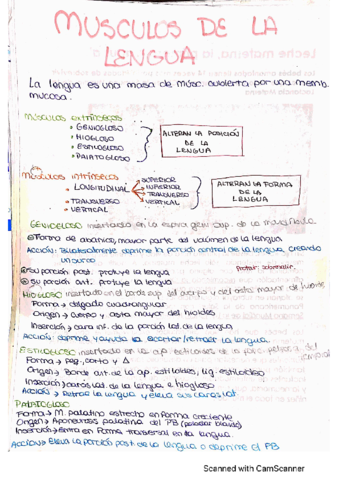 MUSCULOS DE LA
LENGUA
La lengua es una masa de músc. cubierta por una memb.
mucosa.
Músculos extrínsecos
GENIOGLOSO
HIOGLOSO
ESTILOGLOSO
PALATOGLOSO
ALTERAN LA POSICIÓN
DE LA
LENGUA
Músculos intrínsecos
LONGITUDINAL
SUPERIOR
INFERIOR
TRANSVERSO
VERTICAL
TRANSVERSO
VERTICAL
ALTERAN LA FORMA
DE LA
LENGUA
GENIOGLOSO insertado en la espina geni sup. de la mandíbula
Forma de abanico, mayor parte del volumen de la lengua
Acción: Bilateralmente deprime la porción central de la lengua, creando
un surco
su porción post. protuye la lengua
su porción ant. protuye la lengua
HIOGLOSO insertado en el borde sup. del cuerpo y del asta mayor de
Forma → delgado cuadrangular
Origen → cuerpo y asta mayor del hioides
Inserción → cara inf. de la porción lat. de la lengua
Acción: deprime y ayuda a acortar/retraer la lengua.
ESTILOGLOSO insertado en la ap. estiloides de la
Forma → peq., corto y Δ
Origen → Borde ant. de la ap. estiloides, lig. estiloideo
Inserción → caras lat. de la lengua e hiogloso
Acción → Retrae la lengua y eleva sus caras lat
PALATOGLOSO
Forma → M. palatino estrecho en forma creciente
Origen → Aponeurosis palatina del PB (paladar blando)
Inserción → Entra en forma transversal en la lengua.
Acción → Eleva la porción post de la lengua o deprime el PB
Scanned with CamScanner